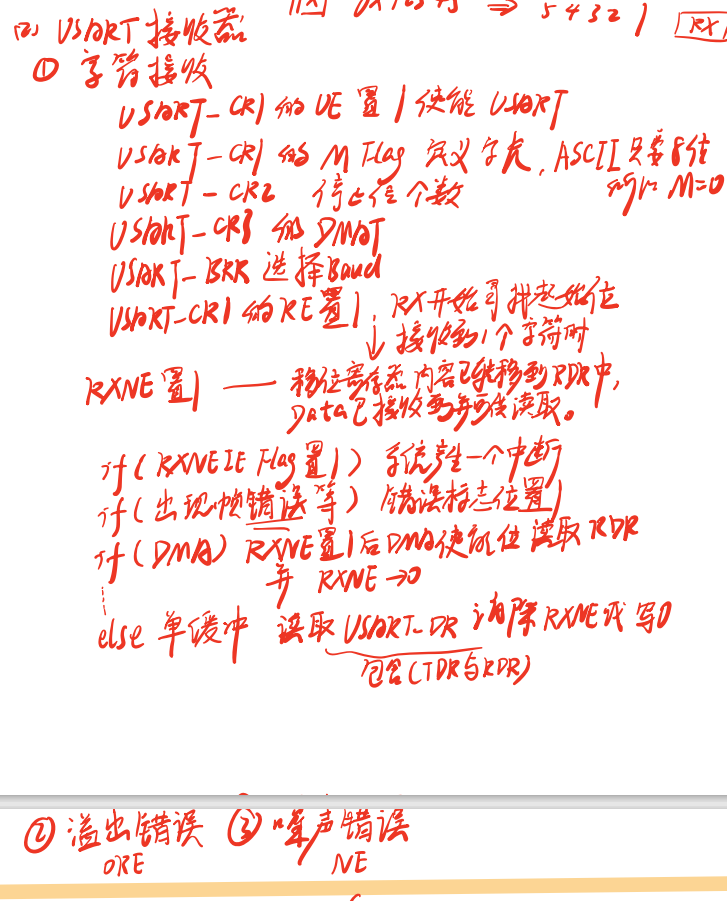 5 4 3 2 1 RX
(2) USART 接收器
① 字符接收
USART-CR1 的 UE 置1 使能 USART
USART-CR1 的 M Flag 定义字长, ASCII只要8位
所以 M=0
USART-CR2 停止位个数
USART-CR3 的 DMAT
USART-BRR 选择Baud
USART-CR1 的 RE 置1, RX开始寻找起始位
↓ 接收到1个字符时
RXNE 置1 —— 移位寄存器内容已转移到RDR中,
Data已接收到并可读取。
if ( RXNEIE Flag 置1 ) 系统产生一个中断
if ( 出现帧错误等 ) 错误标志位置1
if ( DMA ) RXNE置1后DMA使能位 读取 RDR
并 RXNE→0
else 单缓冲 读取 USART-DR 清除RXNE或写0
包含(TDR与RDR)
② 溢出错误 ③ 噪声错误
ORE NE